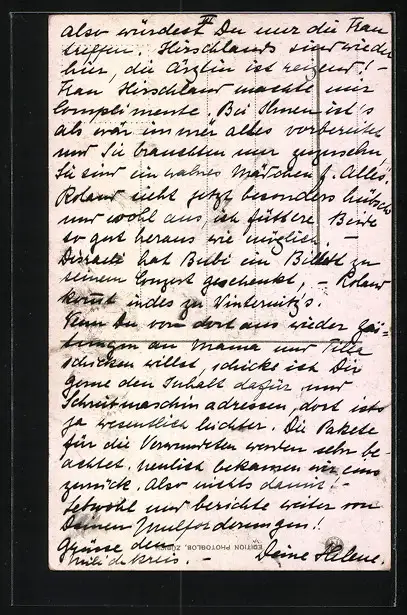 II
also würdest Du nur die Frau
treffen. Hirschlands sind wieder
hier, die Ärztin ist reizend! -
Frau Hirschland machte mir
Complimente. Bei Ihnen ist's
als wär immer alles vorbereitet
und Sie brauchten nur zuzusehn,
Sie sind ein wahres Mädchen f. Alles.
Roland sieht jetzt besonders hübsch
und wohl aus, ich füttere Beide
so gut heraus wie möglich. -
hat Bubi ein Billett zu
seinem Conzert geschenkt, - Roland
kommt indes zu Winternitz's.
Wenn Du von dort aus wieder Zei-
tungen an Mama und
schicken willst, schicke ich Dir
gerne den Inhalt dafür und
Schreibmaschinadressen, dort ists
ja wesentlich leichter. Die Pakete
für die Verwundeten werden sehr be-
achtet, neulich bekamen wir eins
zurück. Also nichts damit! -
Lebwohl und berichte weiter von
Deinen
Grüsse den
. - Deine Helene.
EDITION PHOTOGLOB, ZÜRICH